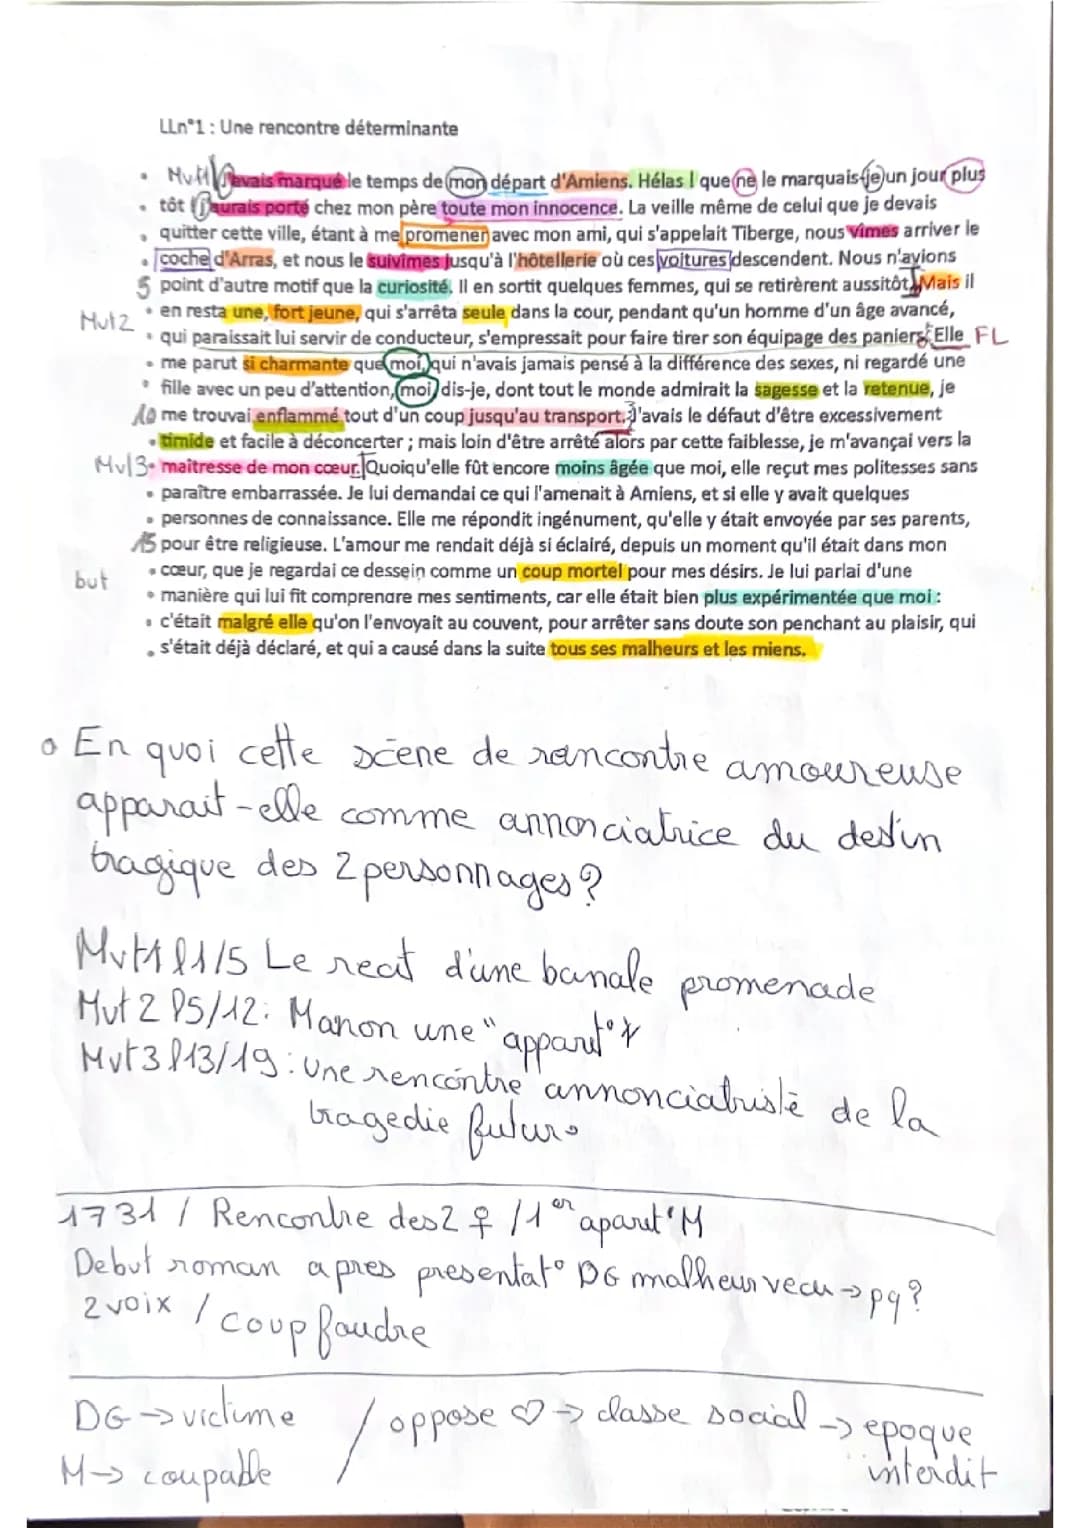 LLn°1 : Une rencontre déterminante
Mvt1 J'avais marqué le temps de mon départ d'Amiens. Hélas ! que ne le marquais-je un jour plus
tôt ! j'aurais porté chez mon père toute mon innocence. La veille même de celui que je devais
quitter cette ville, étant à me promener avec mon ami, qui s'appelait Tiberge, nous vîmes arriver le
coche d'Arras, et nous le suivîmes jusqu'à l'hôtellerie où ces voitures descendent. Nous n'avions
5 point d'autre motif que la curiosité. Il en sortit quelques femmes, qui se retirèrent aussitôt. Mais il
Mvt2 en resta une, fort jeune, qui s'arrêta seule dans la cour, pendant qu'un homme d'un âge avancé,
qui paraissait lui servir de conducteur, s'empressait pour faire tirer son équipage des paniers. Elle FL
me parut si charmante que moi, qui n'avais jamais pensé à la différence des sexes, ni regardé une
fille avec un peu d'attention, moi, dis-je, dont tout le monde admirait la sagesse et la retenue, je
10 me trouvai enflammé tout d'un coup jusqu'au transport. J'avais le défaut d'être excessivement
timide et facile à déconcerter ; mais loin d'être arrêté alors par cette faiblesse, je m'avançai vers la
Mvt3 maîtresse de mon cœur. Quoiqu'elle fût encore moins âgée que moi, elle reçut mes politesses sans
paraître embarrassée. Je lui demandai ce qui l'amenait à Amiens, et si elle y avait quelques
personnes de connaissance. Elle me répondit ingénument, qu'elle y était envoyée par ses parents,
15 pour être religieuse. L'amour me rendait déjà si éclairé, depuis un moment qu'il était dans mon
but cœur, que je regardai ce dessein comme un coup mortel pour mes désirs. Je lui parlai d'une
manière qui lui fit comprendre mes sentiments, car elle était bien plus expérimentée que moi :
c'était malgré elle qu'on l'envoyait au couvent, pour arrêter sans doute son penchant au plaisir, qui
s'était déjà déclaré, et qui a causé dans la suite tous ses malheurs et les miens.
En quoi cette scène de rencontre amoureuse
apparait-elle comme annonciatrice du destin
tragique des 2 personnages ?
Mvt1 l1/5 Le recit d'une banale promenade
Mvt 2 l5/12: Manon une "apparit°"
Mvt3 l13/19: une rencontre annonciatriste de la
tragedie future
1731 / Rencontre des 2 ♀ / 1er aparit° M
Debut roman apres presentat° DG malheur vecu → pq ?
2 voix / coup foudre
DG → victime / oppose ♡ → classe social → epoque
M → coupable interdit